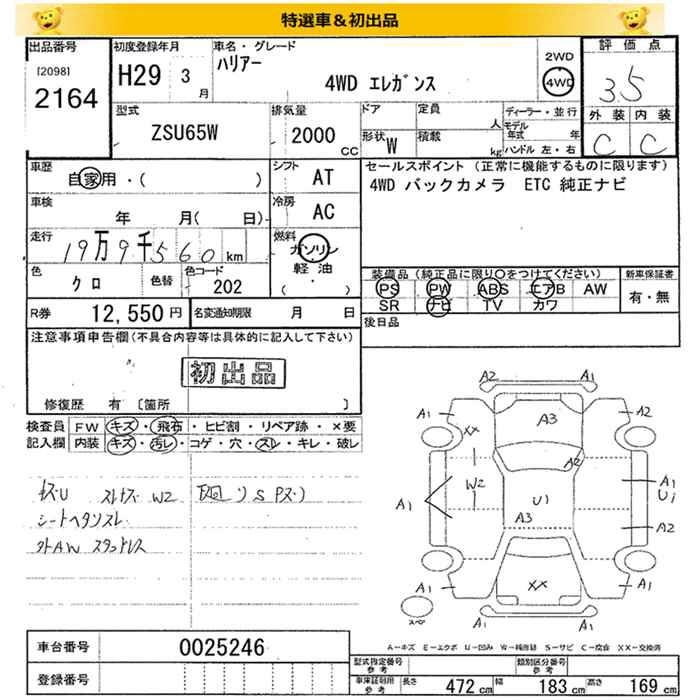 特選車&初出品
出品番号
[2098]
2164
初度登録年月
H29 3月
車名・グレード
ハリアー
4WD エレガンス
2WD
4WD
評価点
3.5
外装 内装
C C
型式
ZSU65W
排気量
2000 CC
ドア
定員 人
形状 W
積載 kg
ディーラー・並行
モデル年式 年
ハンドル 左・右
車歴
自家用・( )
シフト
AT
車検
年 月( 日)
冷房
AC
走行
19万9千560km
燃料
ガソリン
軽油
( )
色
クロ
色替
色コード
202
R券 12,550円
名変通知期限 月 日
セールスポイント (正常に機能するものに限ります)
4WD バックカメラ ETC 純正ナビ
装備品(純正品に限り○をつけてください)
PS PW ABS エアB AW
SR ナビ TV カワ
新車保証書
有・無
後日品
注意事項申告欄(不具合内容等は具体的に記入して下さい)
初出品
修復歴 有 [箇所 ]
検査員記入欄
FW キズ・飛石・ヒビ割・リペア跡・×要
内装 キズ・汚レ・コゲ・穴・スレ・キレ・破レ
シートヘタリスレ
A2 A1
A1 A3 A2
XX
A2
W2
A1 U1 A1
U1
A3
A2
A1 XX A1
A1
スペア
A1
A-キズ E-エクボ U-凹み W-補修跡 S-サビ C-腐食 XX-交換済
車台番号 0025246
登録番号
型式指定番号 参考
類別区分番号 参考
車庫証明用 参考
長さ 472cm 幅 183cm 高さ 169cm